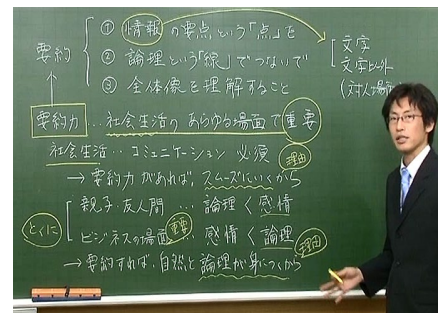 要約
① 情報 の要点という「点」を
② 論理という「線」でつないで
③ 全体像を理解すること
文字
文字以外
(対人場面)
要約力 … 社会生活のあらゆる場面で重要
社会生活 … コミュニケーション 必須 理由
→ 要約力があれば、スムーズにいくから
とくに
親子・友人間 … 論理 < 感情
ビジネスの場面 重要 … 感情 < 論理 理由
→ 要約すれば、自然と論理が身につくから